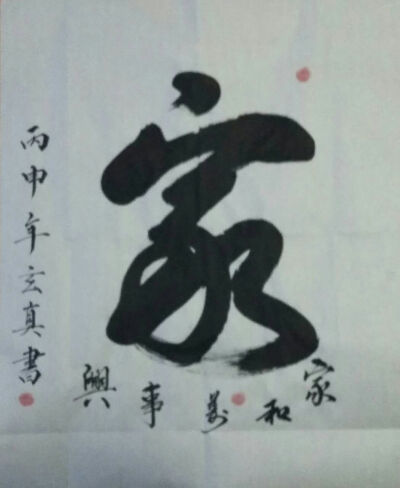 家
家和萬事興
丙申年玄真書